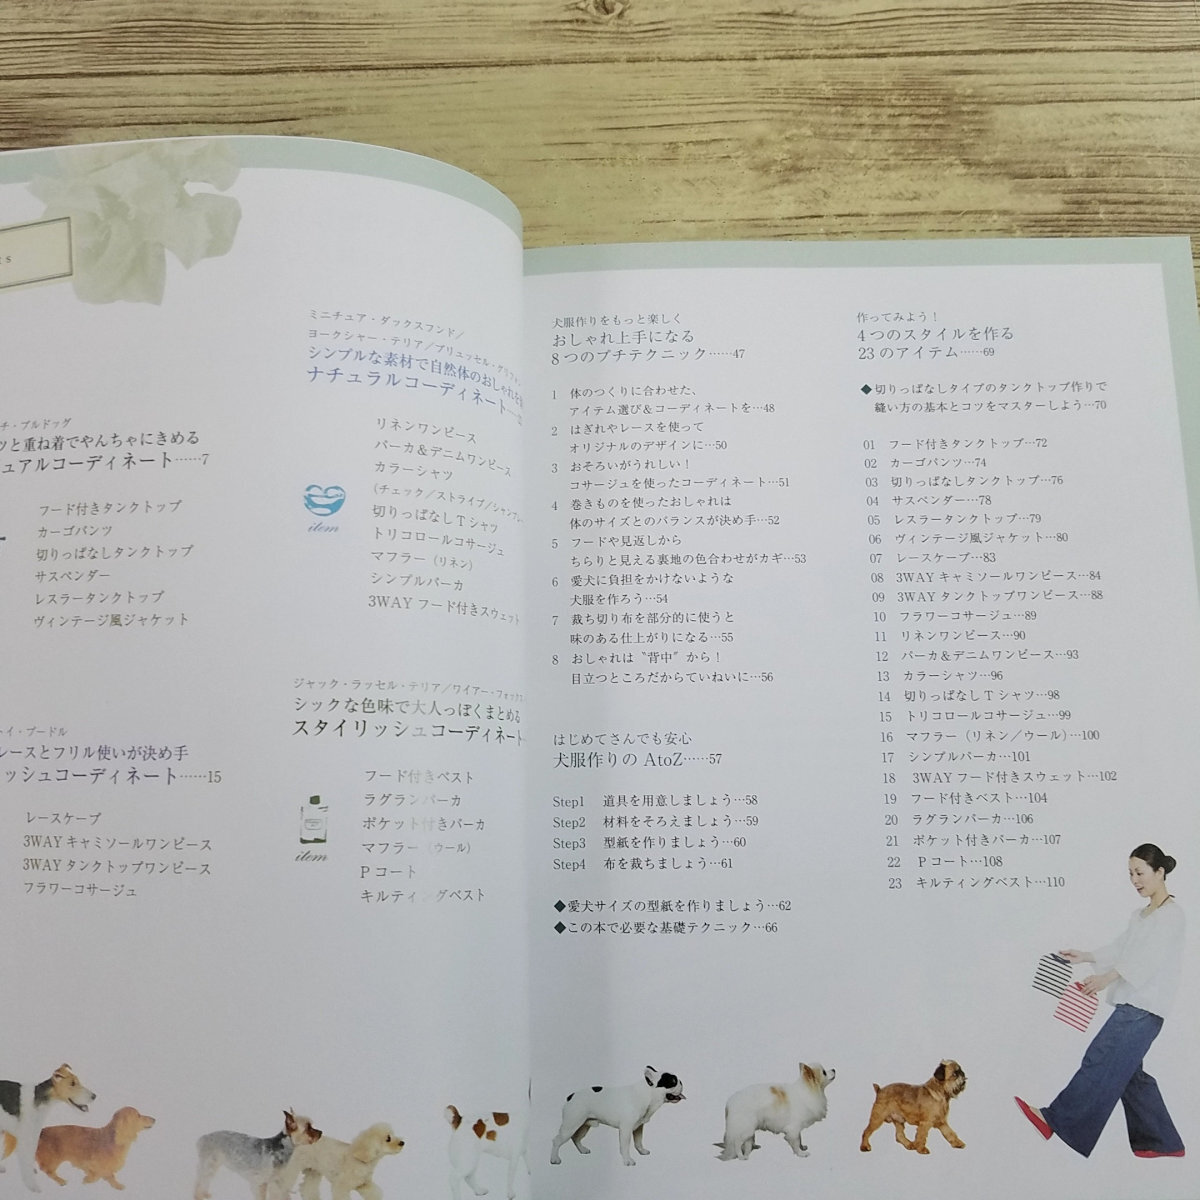 ts
チ・ブルドッグ
ツと重ね着でやんちゃにきめる
ュアルコーディネート……7
フード付きタンクトップ
カーゴパンツ
切りっぱなしタンクトップ
サスペンダー
レスラータンクトップ
ヴィンテージ風ジャケット
イ・プードル
レースとフリル使いが決め手
ッシュコーディネート……15
レースケープ
3WAYキャミソールワンピース
3WAYタンクトップワンピース
フラワーコサージュ
ミニチュア・ダックスフンド/
ヨークシャー・テリア/ブリュッセル・グリフォン
シンプルな素材で自然体のおしゃれを
ナチュラルコーディネート
item
リネンワンピース
パーカ&デニムワンピース
カラーシャツ
(チェック/ストライプ/シャンブレー
切りっぱなしTシャツ
トリコロールコサージュ
マフラー(リネン)
シンプルパーカ
3WAYフード付きスウェット
ジャック・ラッセル・テリア/ワイアー・フォックス
シックな色味で大人っぽくまとめる
スタイリッシュコーディネート
item
フード付きベスト
ラグランパーカ
ポケット付きパーカ
マフラー(ウール)
Pコート
キルティングベスト
犬服作りをもっと楽しく
おしゃれ上手になる
8つのプチテクニック……47
1 体のつくりに合わせた、
アイテム選び&コーディネートを…48
2 はぎれやレースを使って
オリジナルのデザインに…50
3 おそろいがうれしい!
コサージュを使ったコーディネート…51
4 巻きものを使ったおしゃれは
体のサイズとのバランスが決め手…52
5 フードや見返しから
ちらりと見える裏地の色合わせがカギ…53
6 愛犬に負担をかけないような
犬服を作ろう…54
7 裁ち切り布を部分的に使うと
味のある仕上がりになる…55
8 おしゃれは〝背中〟から!
目立つところだからていねいに…56
はじめてさんでも安心
犬服作りのAtoZ……57
Step1 道具を用意しましょう…58
Step2 材料をそろえましょう…59
Step3 型紙を作りましょう…60
Step4 布を裁ちましょう…61
◆愛犬サイズの型紙を作りましょう…62
◆この本で必要な基礎テクニック…66
作ってみよう!
4つのスタイルを作る
23のアイテム……69
◆切りっぱなしタイプのタンクトップ作りで
縫い方の基本とコツをマスターしよう…70
01 フード付きタンクトップ…72
02 カーゴパンツ…74
03 切りっぱなしタンクトップ…76
04 サスペンダー…78
05 レスラータンクトップ…79
06 ヴィンテージ風ジャケット…80
07 レースケープ…83
08 3WAYキャミソールワンピース…84
09 3WAYタンクトップワンピース…88
10 フラワーコサージュ…89
11 リネンワンピース…90
12 パーカ&デニムワンピース…93
13 カラーシャツ…96
14 切りっぱなしTシャツ…98
15 トリコロールコサージュ…99
16 マフラー(リネン/ウール)…100
17 シンプルパーカ…101
18 3WAYフード付きスウェット…102
19 フード付きベスト…104
20 ラグランパーカ…106
21 ポケット付きパーカ…107
22 Pコート…108
23 キルティングベスト…110